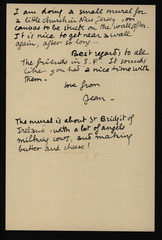 I am doing a small mural for
a little church in New Jersey, on
canvas to be stuck on the wall, after.
It is nice to get near a wall
again, after so long.
Best regards to all
the friends in S.F. It sounds
like you had a nice time with
them.
love from
Jean.
The mural is about St Bridgit of
Ireland with a lot of angels
milking cows, and making
butter and cheese!